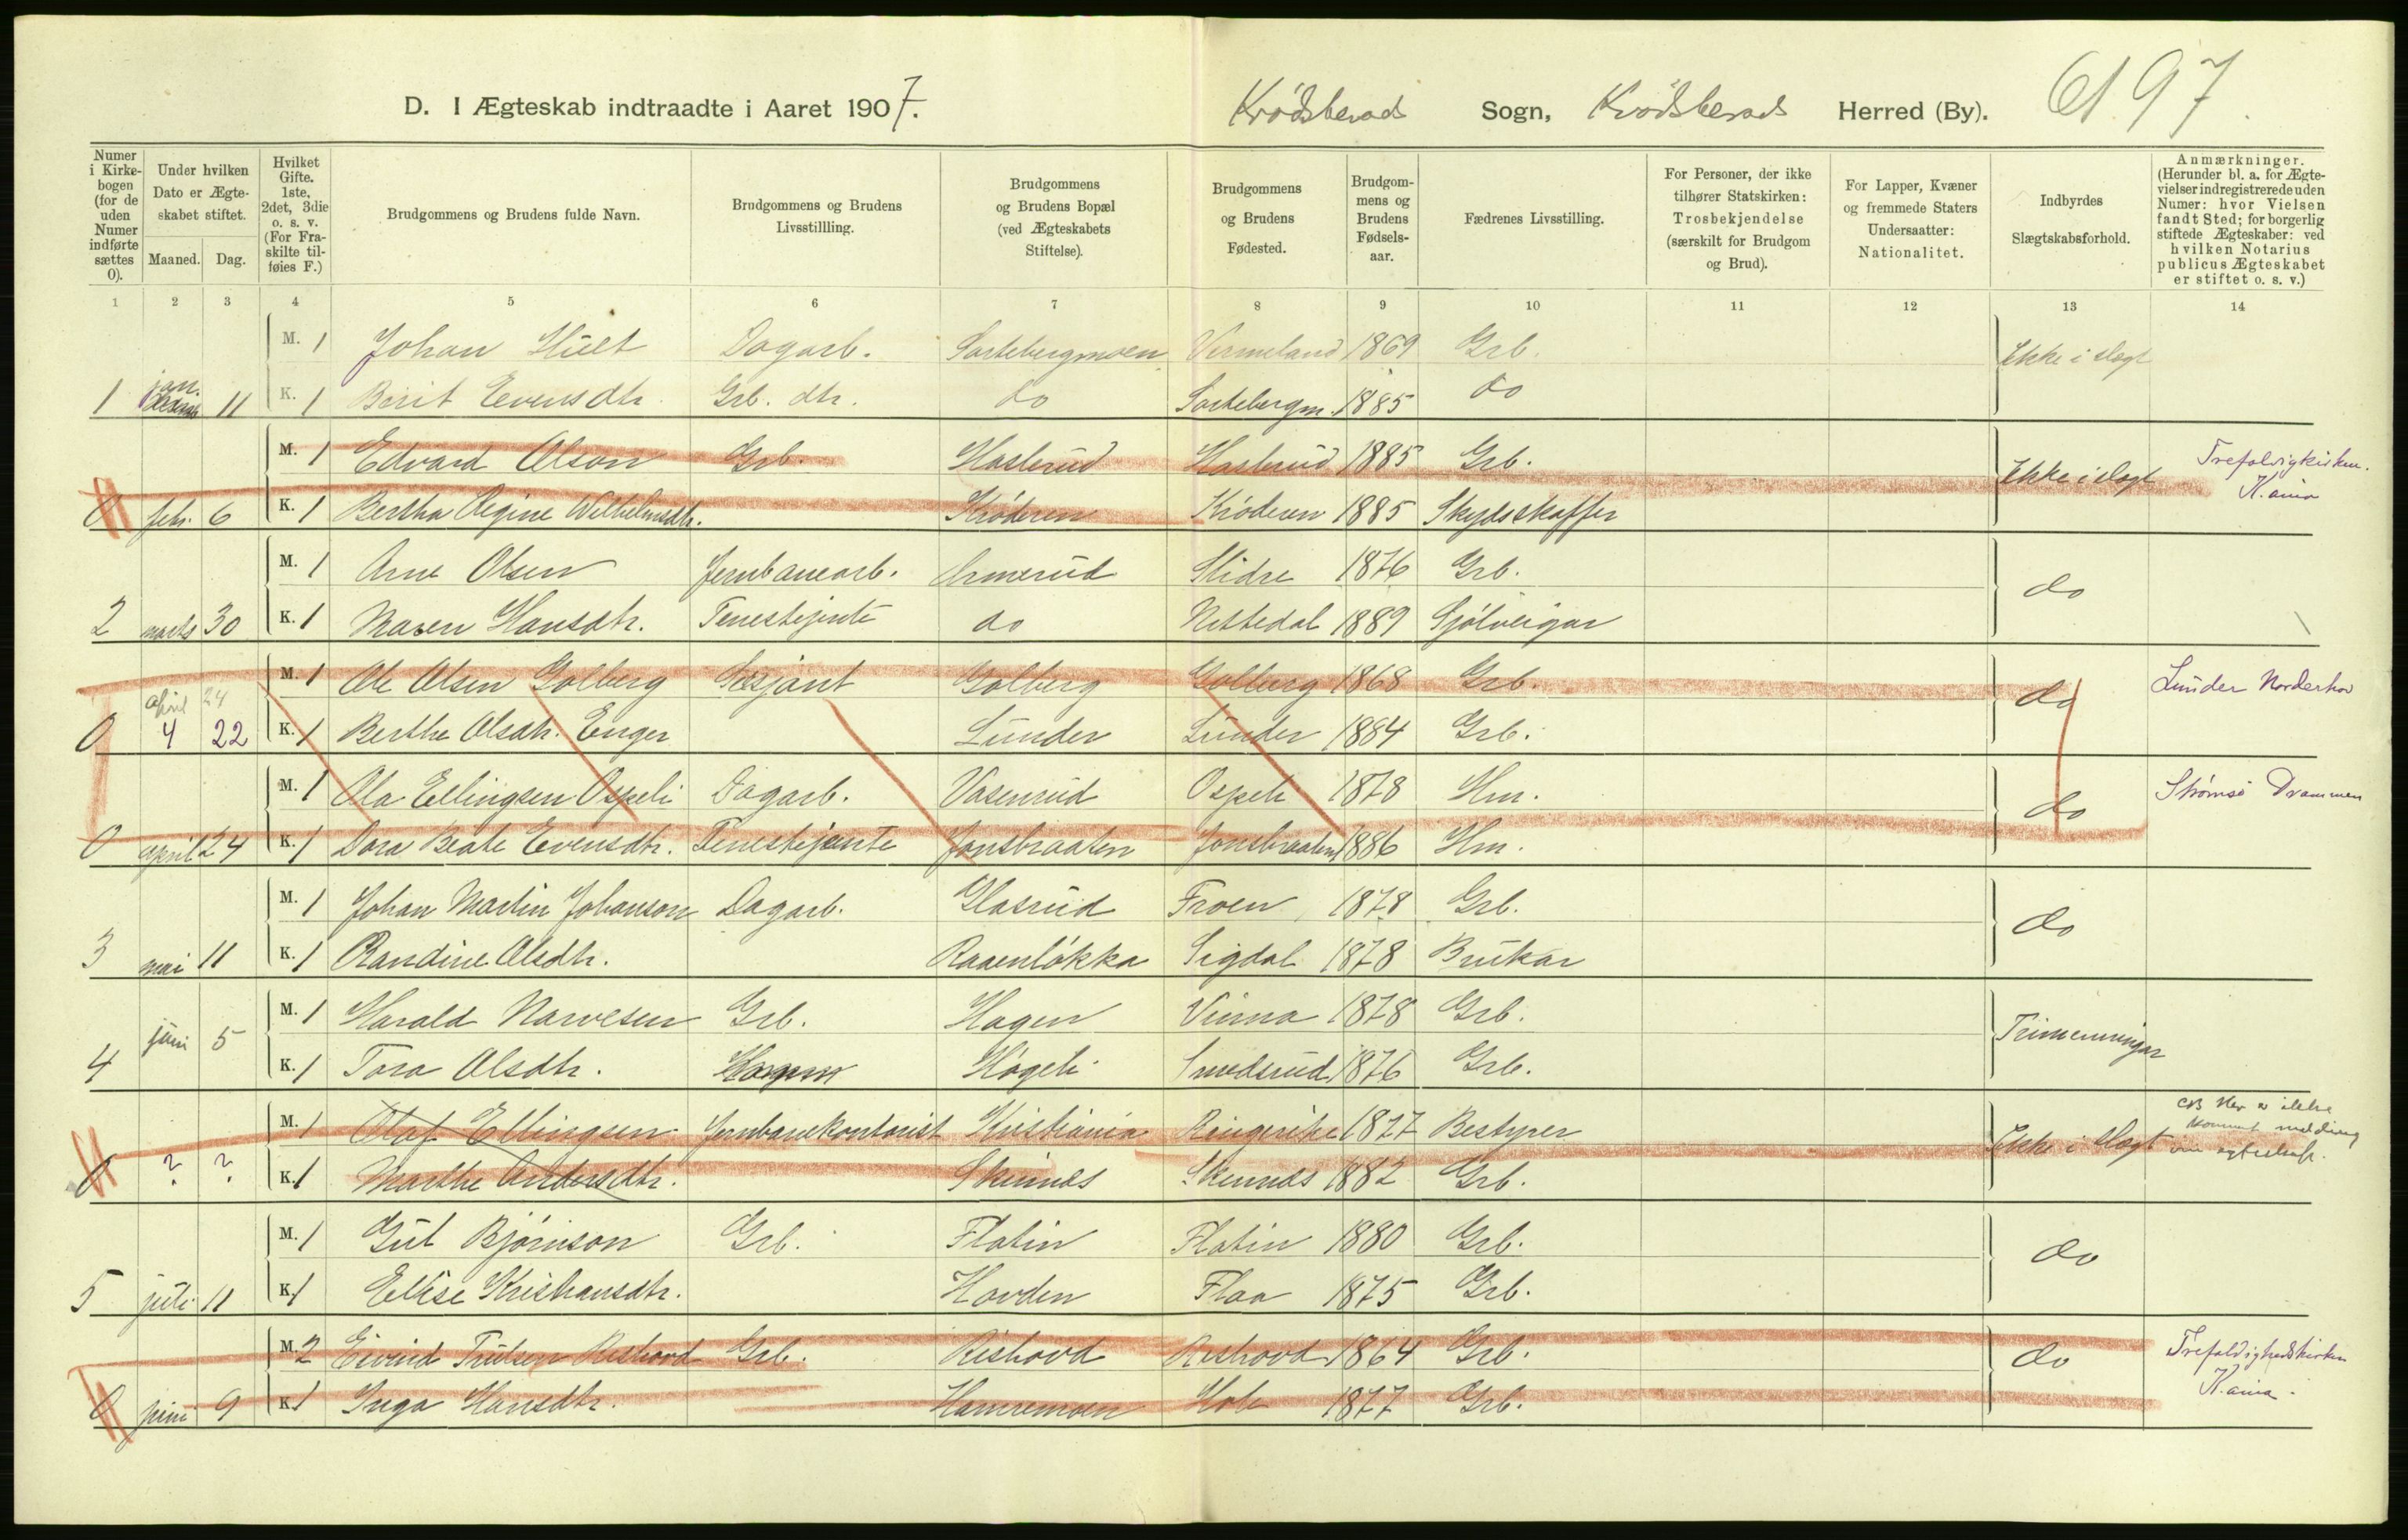 D. I Ægteskab indtraadte i Aaret 1907. Krødsherads Sogn, Krødsherads Herred (By). 97
Numer i Kirkebogen (for de uden Numer indførte sættes 0).
Under hvilken Dato er Ægteskabet stiftet.
Maaned. Dag.
Hvilket Gifte. 1ste, 2det, 3die o. s. v. (For Fraskilte tilføies F.)
Brudgommens og Brudens fulde Navn.
Brudgommens og Brudens Livsstillling.
Brudgommens og Brudens Bopæl (ved Ægteskabets Stiftelse).
Brudgommens og Brudens Fødested.
Brudgommens og Brudens Fødselsaar.
Fædrenes Livsstilling.
For Personer, der ikke tilhører Statskirken: Trosbekjendelse (særskilt for Brudgom og Brud).
For Lapper, Kvæner og fremmede Staters Undersaatter: Nationalitet.
Indbyrdes Slægtskabsforhold.
Anmærkninger. (Herunder bl. a. for Ægtevielser indregistrerede uden Numer: hvor Vielsen fandt Sted; for borgerlig stiftede Ægteskaber: ved hvilken Notarius publicus Ægteskabet er stiftet o. s. v.)
1 2 3 4 5 6 7 8 9 10 11 12 13 14
M. 1 Johan Hult Dagarb. Sortebergmoen Vermeland 1869 Grb. Ikke i slegt
1 jan. 11 K. 1 Berit Evensdtr. Grb. dtr. do Sortebergm. 1885 do
M. 1 Edvard Olson Grb. Haslerud Haslerud 1885 Grb. Ikke i slegt Trefoldigkirken.
0 febr. 6 K. 1 Bertha Regine Wilhelmsdtr. Krøderen Krøderen 1885 Skydsskaffer K.ania
M. 1 Arne Olsen Jernbanearb. Ormerud Slidre 1876 Grb. do
2 marts 30 K. 1 Maren Hansdtr. Tenestejente do Nittedal 1889 Sjølveigar
M. 1 Ole Olsen Golberg Sersjant Golberg Golberg 1868 Grb. do Lunder Norderhov
april 24
0 4 22 K. 1 Berthe Olsdtr. Enger Lunder Lunder 1884 Grb.
M. 1 Ola Ellingsen Ospeli Dagarb. Vasenrud Ospeli 1878 Hm. do Strømsø Drammen
0 april 24 K. 1 Dora Beate Evensdtr. Tenestejente Jonsbraaten Jonsbraaten 1886 Hm.
M. 1 Johan Martin Johanson Dagarb. Glasrud Froen 1878 Grb. do
3 mai 11 K. 1 Randine Olsdtr. Raaenløkka Sigdal 1878 Brukar
M. 1 Harald Narvesen Grb. Hagen Vinna 1878 Grb. Trimenningar
4 juni 5 K. 1 Tora Olsdtr. Høgeli Smedsrud 1876 Grb.
M. 1 Olaf Ellingsen Jernbanekontorist Kristiania Ringerike 1877 Bestyrer Ikke i slegt Her er ikke kommet melding om egteskap.
0 ? ? K. 1 Marthe Andersdtr. Skinnes Skinnes 1882 Grb.
M. 1 Gut Bjørnson Grb. Flatin Flatin 1880 Grb. do
5 juli 11 K. 1 Ellise Kristiansdtr. Hovden Flaa 1875 Grb.
M. 2 Eivind Trulsen Rishovd Grb. Rishovd Rishovd 1864 Grb. do Trefoldighedskirken
0 juni 9 K. 1 Inga Hansdtr. Hamremoen Hole 1877 Grb. K.ania.